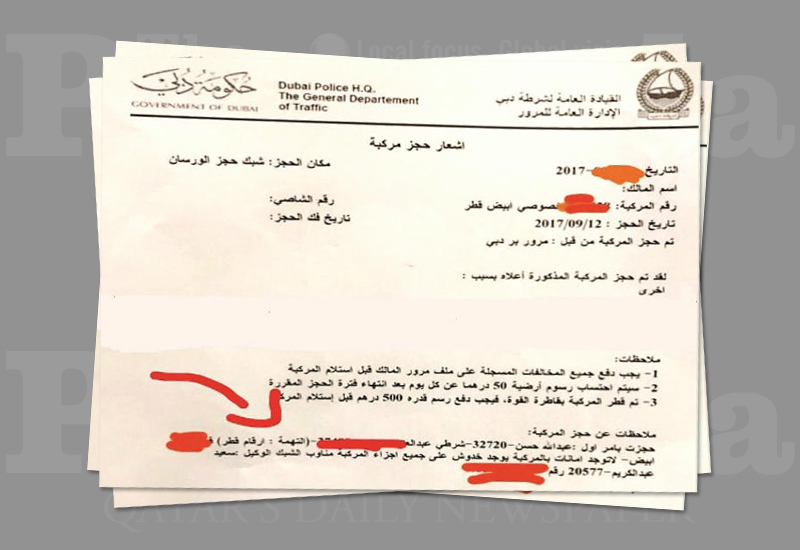 حكومة دبي
GOVERNMENT OF DUBAI
Dubai Police H.Q.
The General Departement
of Traffic
القيادة العامة لشرطة دبي
الإدارة العامة للمرور
اشعار حجز مركبة
التاريخ -2017
مكان الحجز: شبك حجز الورسان
اسم المالك:
رقم المركبة: خصوصي ابيض قطر
رقم الشاصي:
تاريخ الحجز : 2017/09/12
تاريخ فك الحجز:
تم حجز المركبة من قبل : مرور بر دبي
لقد تم حجز المركبة المذكورة أعلاه بسبب :
اخرى
ملاحظات:
1- يجب دفع جميع المخالفات المسجلة على ملف مرور المالك قبل استلام المركبة
2- سيتم احتساب رسوم أرضية 50 درهما عن كل يوم بعد انتهاء فترة الحجز المقررة
3- تم قطر المركبة بقاطرة القوة، فيجب دفع رسم قدره 500 درهم قبل إستلام
ملاحظات عن حجز المركبة:
حجزت بامر اول :عبدالله حسن-32720-شرطي (التهمة : ارقام قطر)
ابيض- لاتوجد امانات بالمركبة يوجد خدوش على جميع اجزاء المركبة مناوب الشبك الوكيل :سعيد
عبدالكريم-20577 رقم
QATAR'S DAILY NEWSPAPER